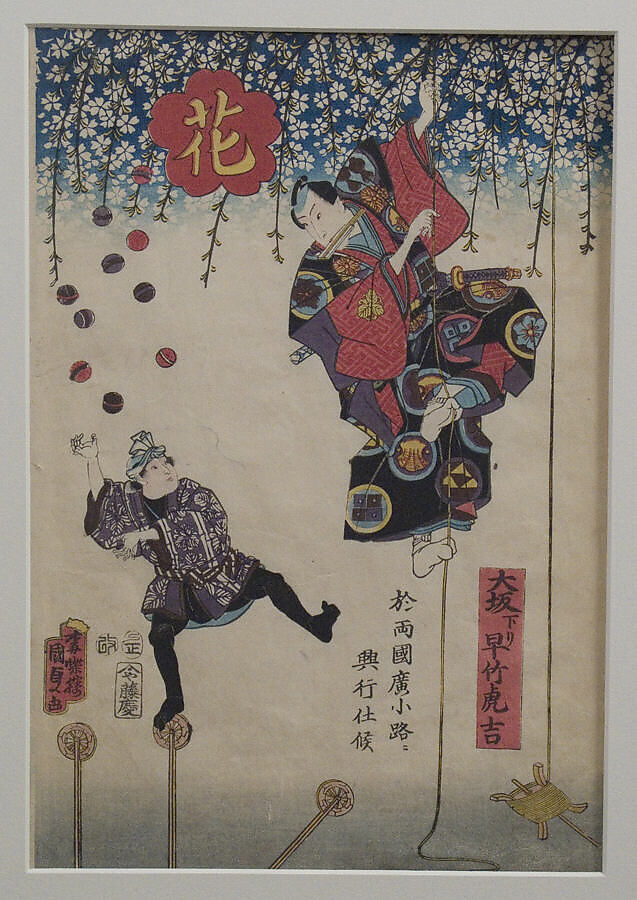 花
大坂下り早竹虎吉
於両國廣小路ニ
興行仕候
改
藤慶
國貞画